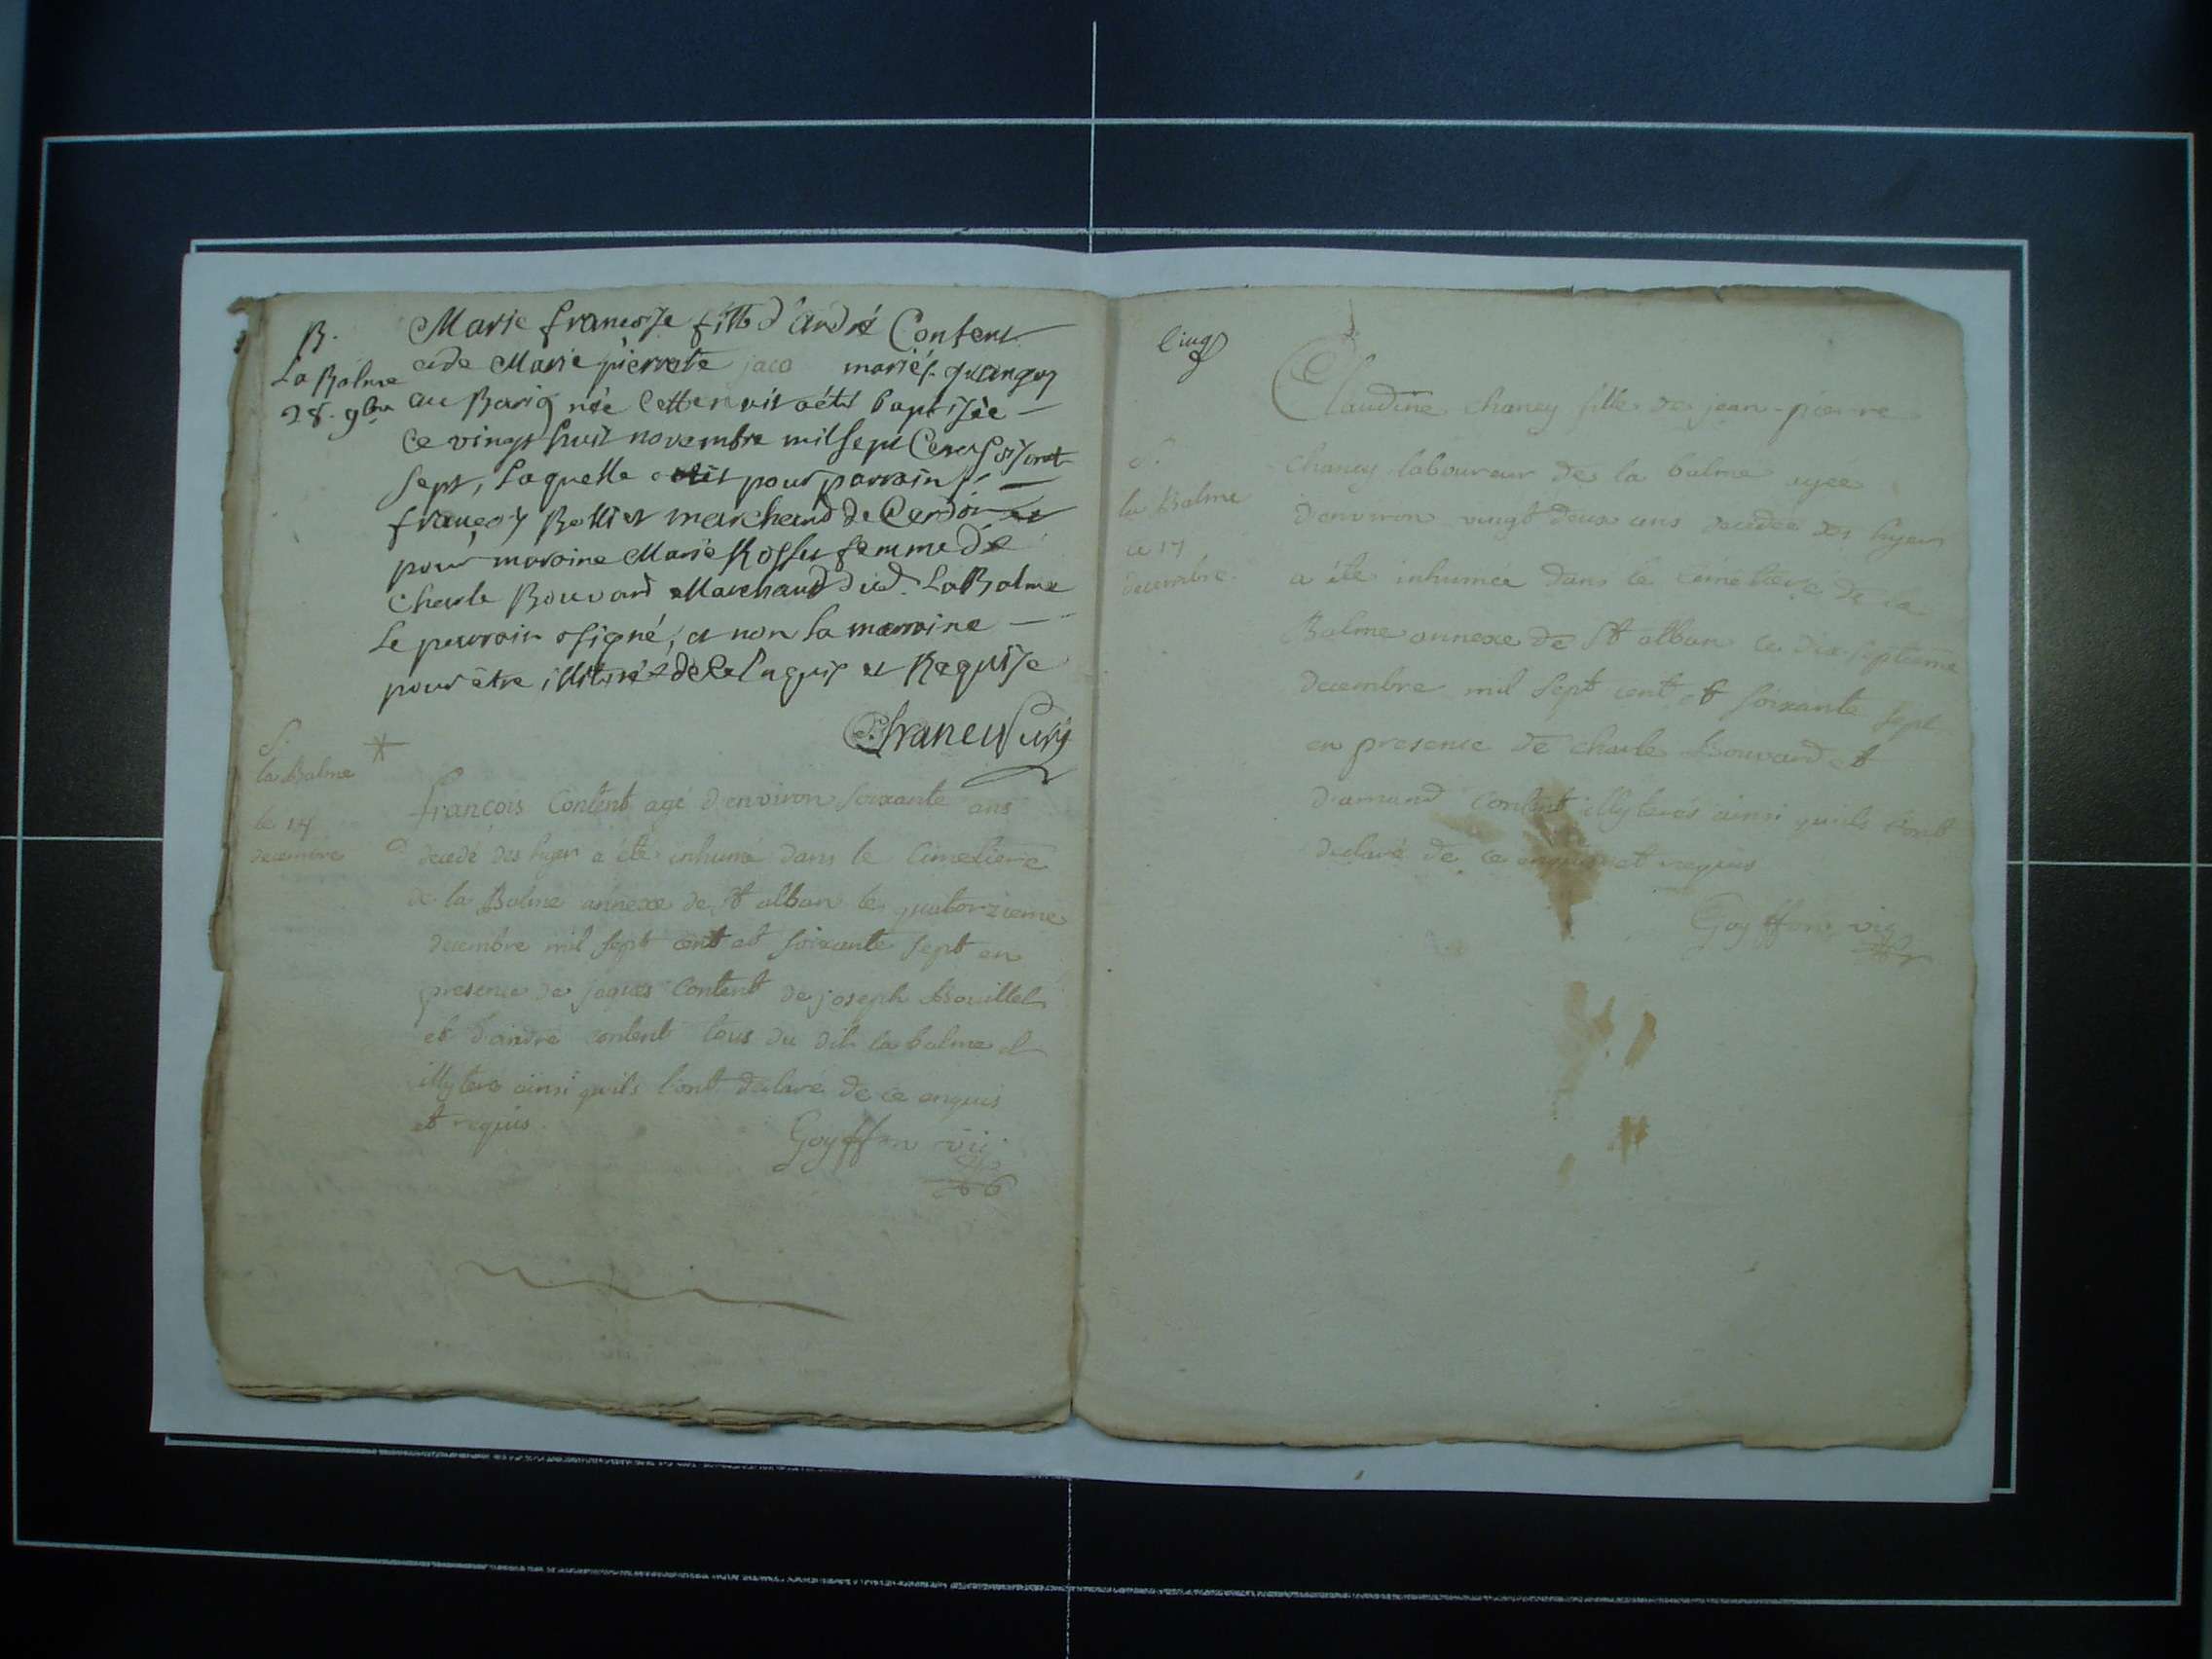 B.
La Balme
28. 9bre
Marie francoise fille d'andré Content
et de Marie pierrete jaco mariés
au Barig née cette nuit a été baptisée
ce vingt huit novembre mil sept Cent soisente
sept, Laquelle a eüe pour parrain
françoy Bollier marchand de Cerdon et
pour maraine Marie Rosset femme de
Charle Bouvard Marchand dud. La Balme
Le parrain signé, et non la marraine
pour être illiteré de ce Enquis et Requise
S.
la Balme
le 14
decembre
françois Content agé d'environ soixante ans
decedé des hyer a été inhumé dans le Cimetiere
de la Balme annexe de St alban le quatorzieme
decembre mil sept cent et soixante sept en
presence de jaques Content de joseph Bouillet
et d'andré content tous du dit la balme et
illyteré ainsi qu'ils l'ont declaré de ce enquis
et requis
Goyffon vic
Cinq
Claudine chaney fille de jean-pierre
S.
la Balme
ce 17
decembre.
chaney laboureur de la balme agee
d'environ vingt deux ans decedée des hyer
a été inhumée dans le Cimetiere de la
Balme annexe de St alban ce dix septieme
decembre mil sept cent et soixante sept
en presence de charle Bouvard et
d'amand Content illyterés ainsi qu'ils l'ont
declaré de ce enquis et requis
Goyffon vic